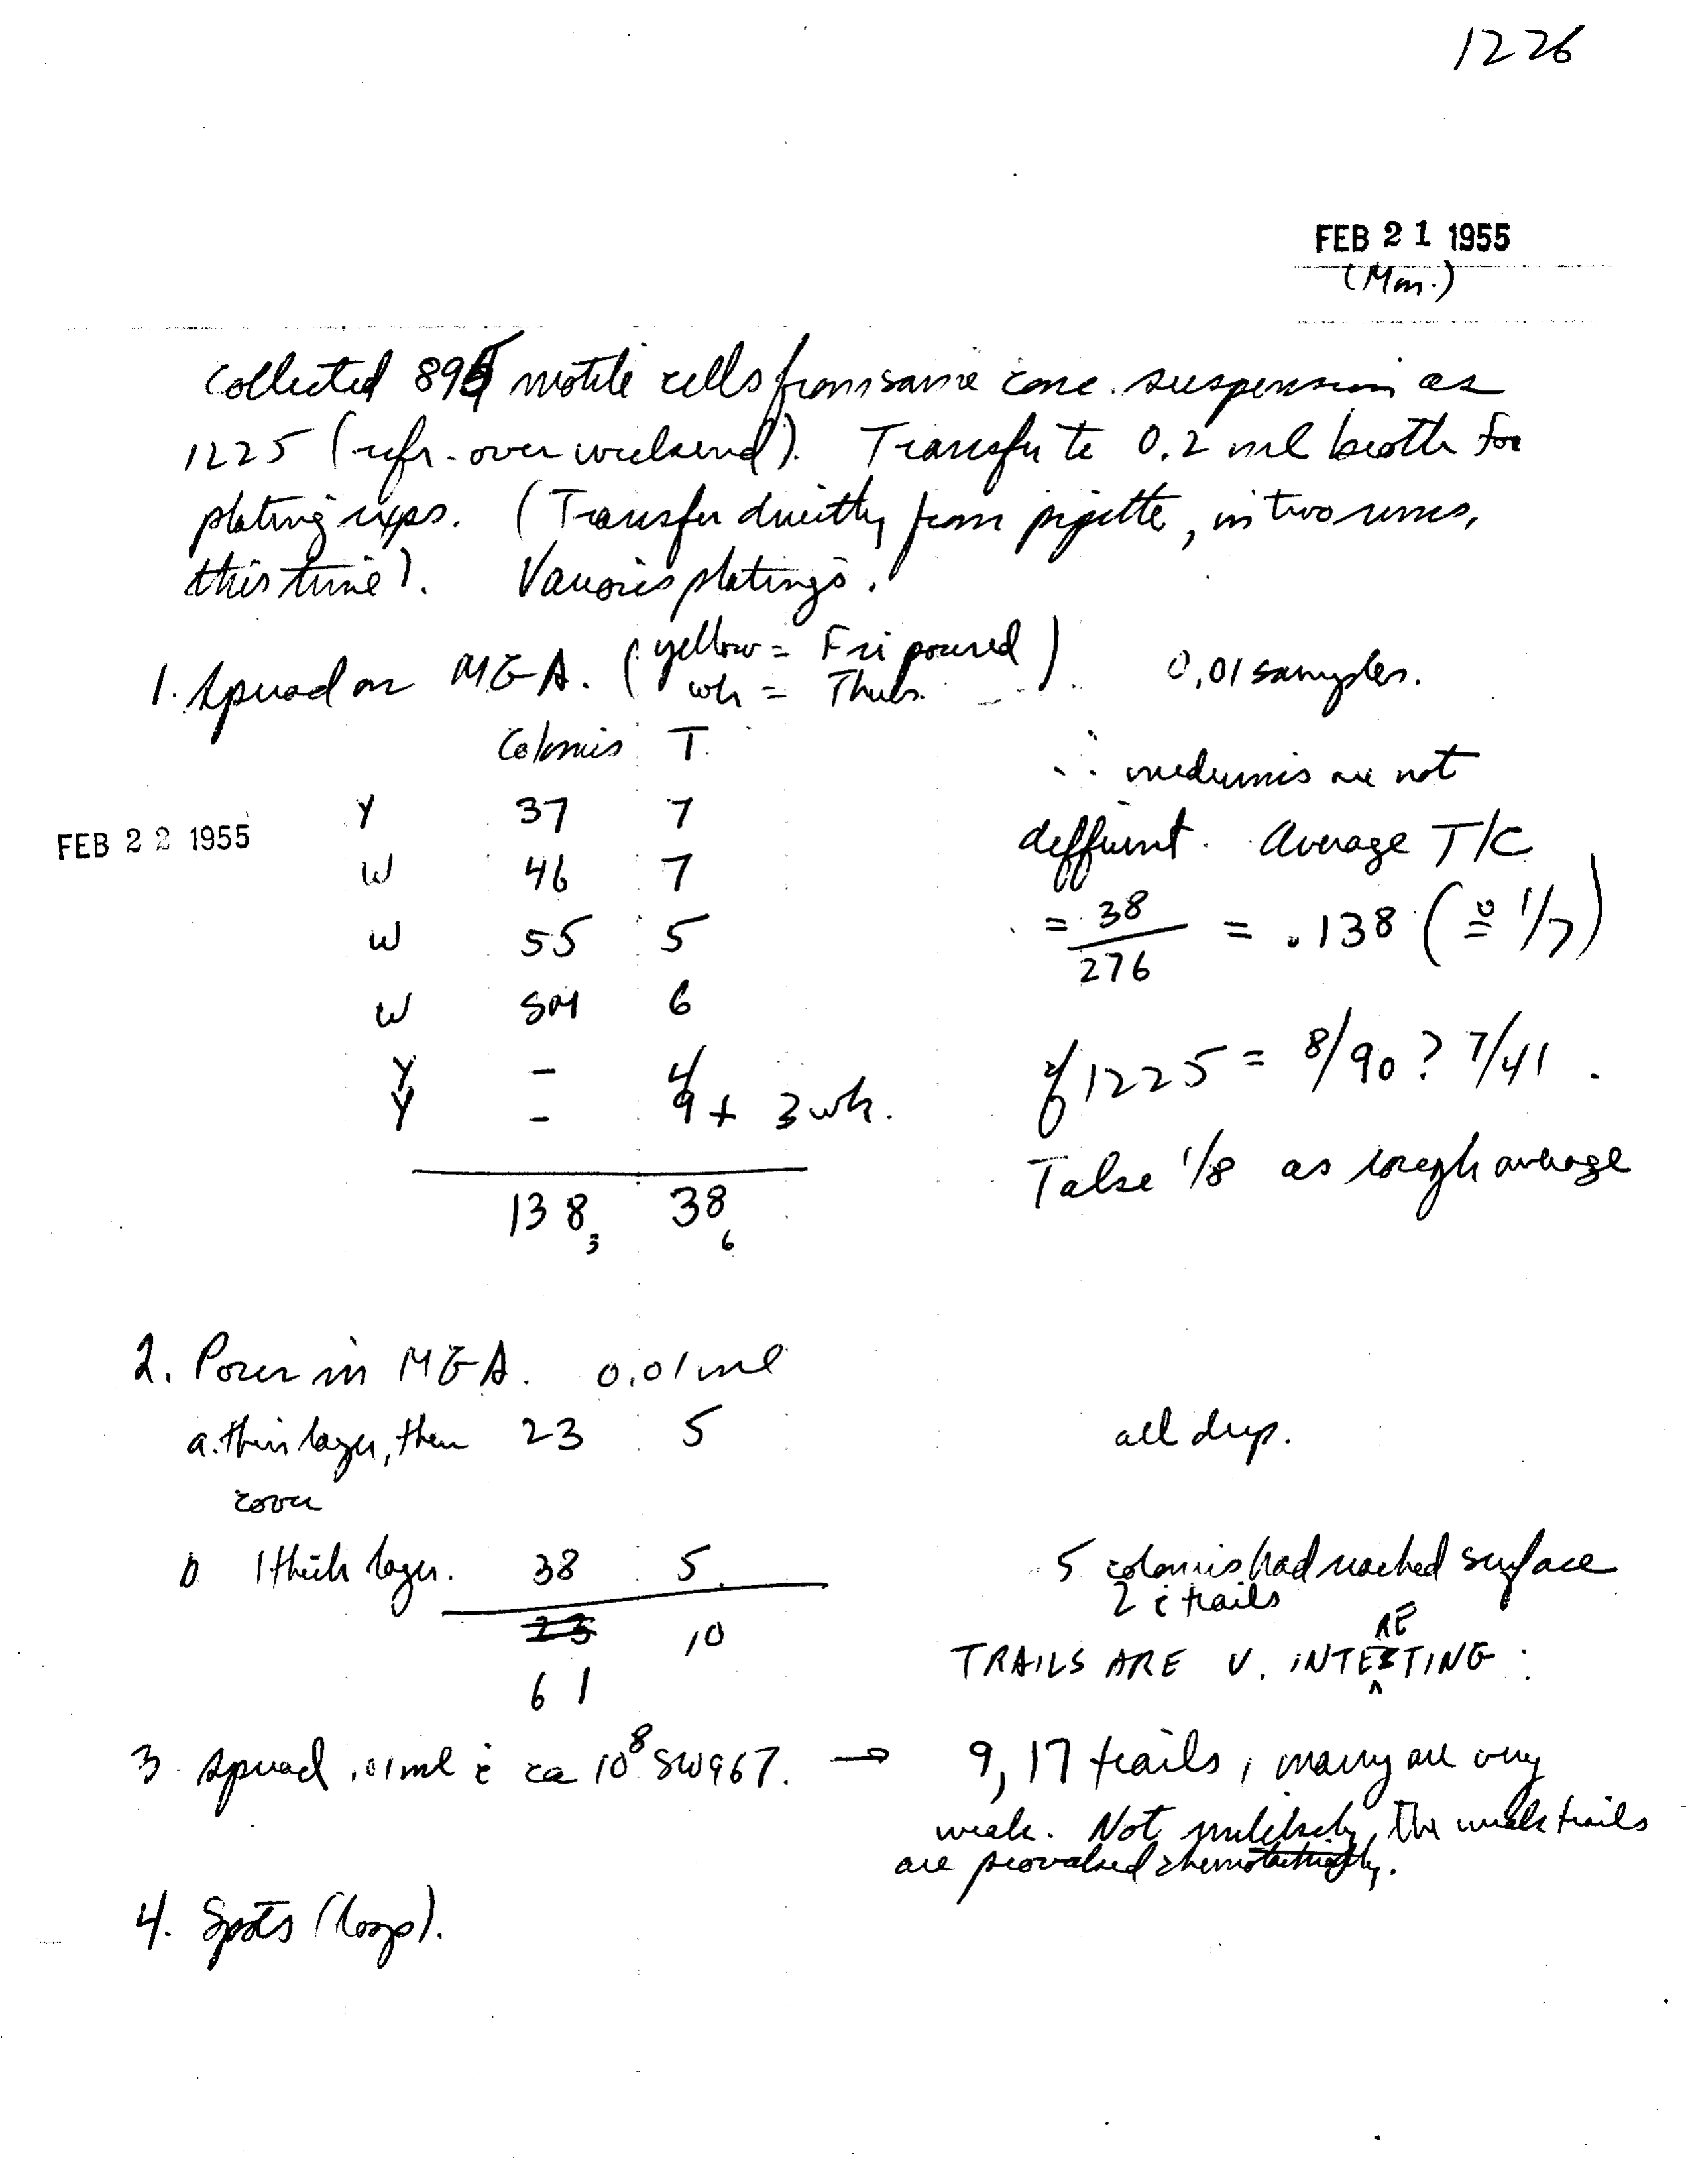 1226
FEB 21 1955
(Mon.)
Collected 895 motile cells from same conc. suspension as
1225 (refr. over weekend). Transfer to 0.2 ml broth for
plating exps. (Transfer directly from pipette, in two runs,
this time). Various platings.
1. Spread on MGA. (yellow = Fri poured
wh = Thurs. ) 0,01 samples.
Colonies T.
FEB 22 1955
Y 37 7
W 46 7
W 55 5
W 6
Y – 4
Y – 9 + 3 wh.
138 3 38 6
∴ mediums are not
different. Average T/C
= 38/276 = .138 (≅ 1/7)
cf 1225 = 8/90? 7/41.
Take 1/8 as rough average
2. Pour in MGA. 0.01 ml
a. thin layer, then 23 5 all deep.
cover
b 1 thick layer. 38 5. 5 colonies had reached surface
2 c̄ trails
23 10
61
TRAILS ARE V. INTERESTING :
3. Spread .01 ml c̄ ca 10⁸ SW967. → 9, 17 trails, many are very
weak. Not unlikely, the weak trails
are provoked chemotactically.
4. Spots (loops).